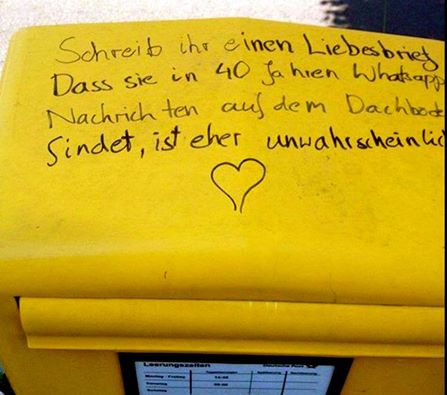 Schreib ihr einen Liebesbrief
Dass sie in 40 Jahren Whatsapp
Nachrichten auf dem Dachbod
findet, ist eher unwahrscheinlic
Leerungszeiten Deutsche Post
Montag - Freitag
Samstag
Sonntag